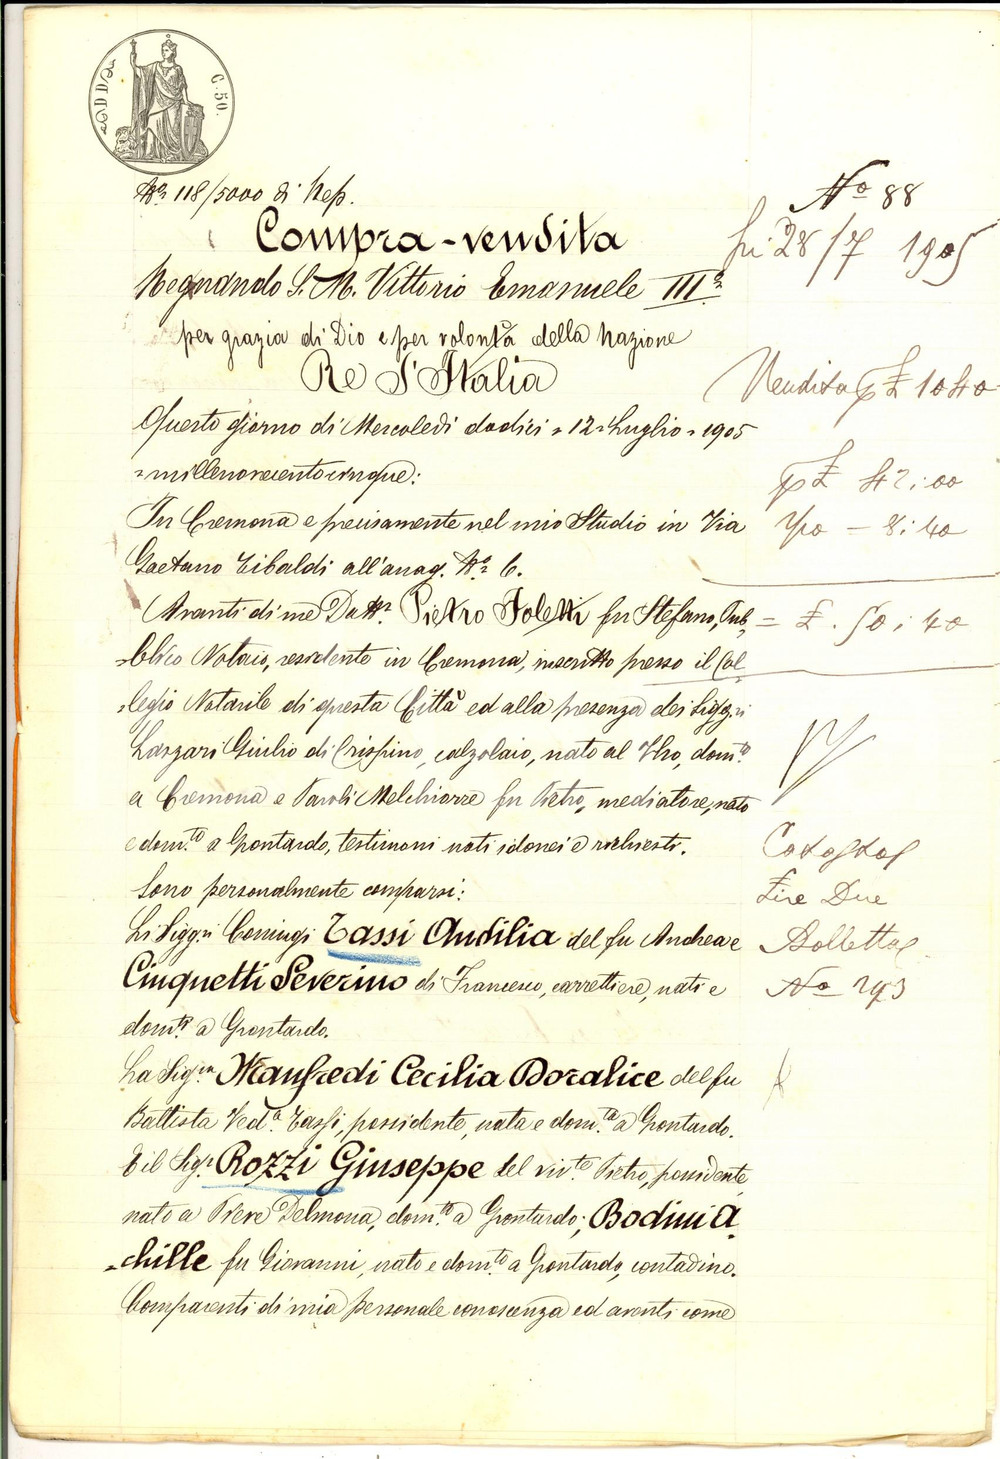 C. 50.
Nº 118/5000 di Rep.
Nº 88
Compra-vendita
28/7 1905
Regnando S. M. Vittorio Emanuele IIIº
per grazia di Dio e per volontà della Nazione
Re d'Italia
Vendita £ 1040
Questo giorno di Mercoledì dodici = 12 = Luglio = 1905
= millenovecentocinque:
£ 42:00
In Cremona e precisamente nel mio Studio in Via
= 8:40
Gaetano Tibaldi all'anag. Nº 6.
Avanti di me Dottr. Pietro Foletti fu Stefano, Pub=
= £. 50:40
=blico Notaio, residente in Cremona, inscritto presso il Col=
=legio Notarile di questa Città ed alla presenza dei Sigg.ri
Lazzari Giulio di Crispino, calzolaio, nato al Vho, dom.to
a Cremona e Paroli Melchiorre fu Pietro, mediatore, nato
e dom.to a Grontardo, testimoni noti idonei e richiesti.
Sono personalmente comparsi:
Lire Due
Li Sigg.ri Coniugi Tassi Ausilia del fu Andrea e
Bolletta
Cinquetti Severino di Francesco, carrettiere, nati e
Nº 293
dom.ti a Grontardo.
La Sig.ra Manfredi Cecilia Doralice del fu
Battista Ved.a Tassi, possidente, nata e dom.ta a Grontardo.
E il Sig.r Rozzi Giuseppe del viv.te Pietro, possidente
nato a Pieve Delmona, dom.to a Grontardo; Bodini A=
=chille fu Giovanni, nato e dom.to a Grontardo, contadino.
Comparenti di mia personale conoscenza ed aventi come